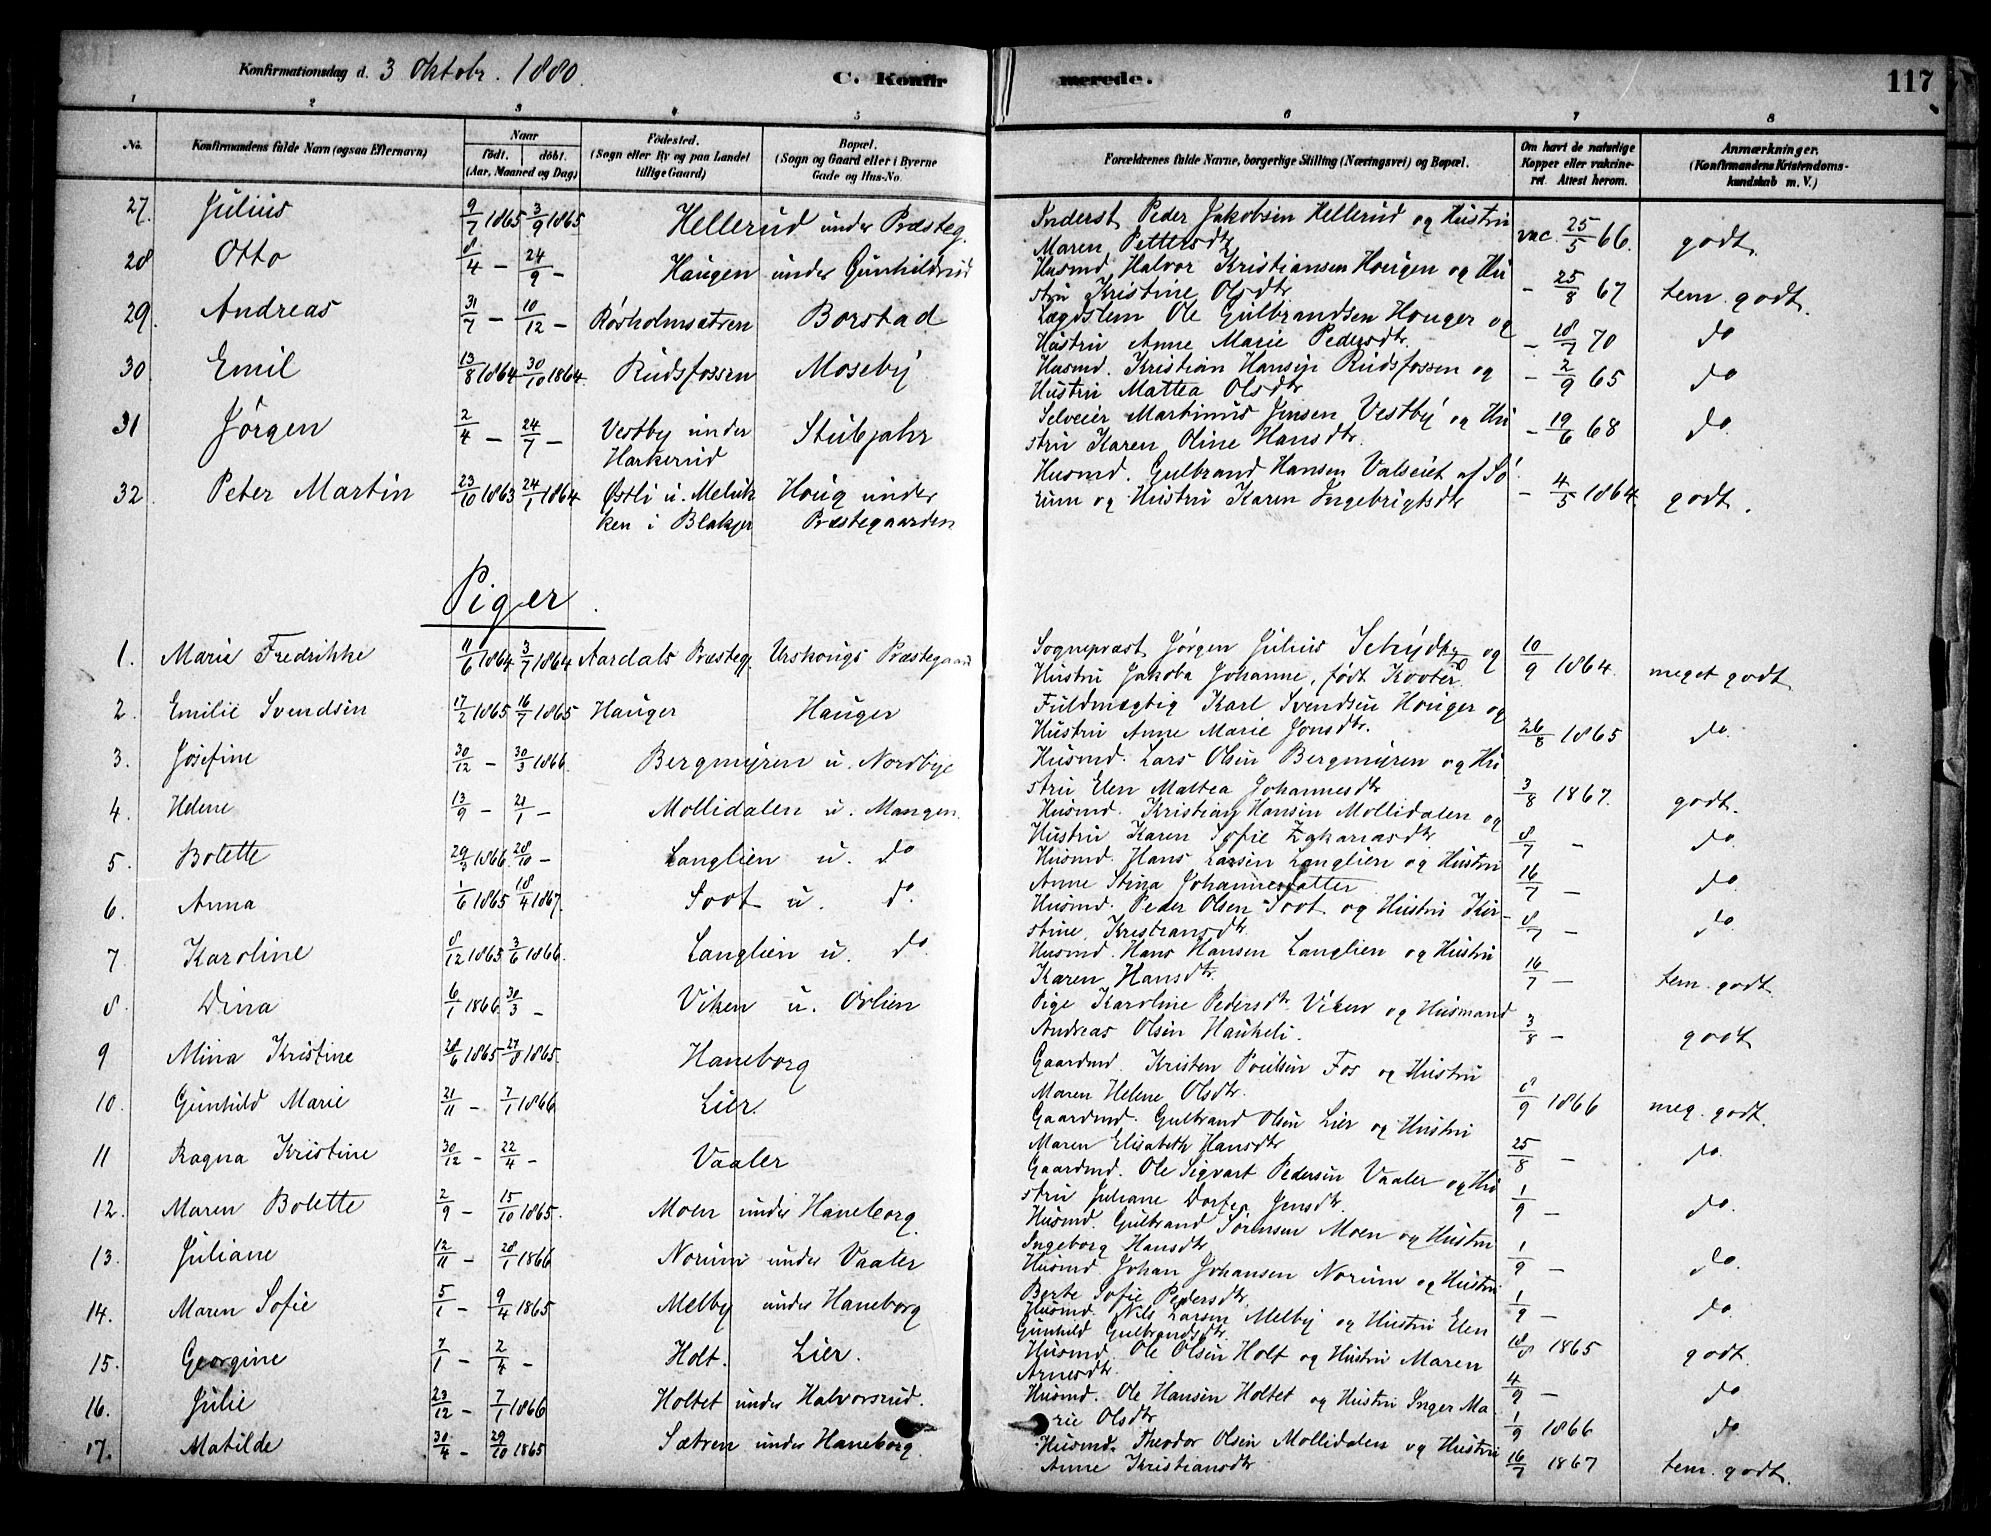 Konfirmationsdag d. 3 Oktobr. 1880.
C. Konfir
merede.
117
1 2 3 4 5 6 7 8
No.
Konfirmandens fulde Navn (ogsaa Efternavn)
Naar
født. døbt.
(Aar, Maaned og Dag)
Fødested.
(Sogn eller By og paa Landet
tillige Gaard)
Bopæl.
(Sogn og Gaard eller i Byerne
Gade og Hus-No.
Forældrenes fulde Navne, borgerlige Stilling (Næringsvei) og Bopæl.
Om havt de naturlige
Kopper eller vakcine-
ret. Attest herom.
Anmærkninger.
(Konfirmandens Kristendoms-
kundskab m. V.)
27. Julius 9/7 1865 3/9 1865 Hellerud under Præsteg. Inderst Peder Jakobsen Hellerud og Hustru
Maren Pettersdtr. vac. 25/5 66. godt.
28 Otto 8/4 – 24/9 – Haugen under Gunhildrud Husmd. Halvor Kristiansen Hougen og Hu
stru Kristine Olsdtr. – 25/8 67 tem. godt.
29. Andreas 31/7 – 10/12 – Rørholmsætren Borstad Lægdslem Ole Gulbrandsen Houger og
Hustru Anne Marie Pedersdtr. – 18/7 70 do
30 Emil 13/8 1864 30/10 1864. Rudsfossen Moseby Husmd. Kristian Hansen Rudsfossen og
Hustru Mattea Olsdtr. – 2/9 65 do
31 Jørgen 2/4 – 24/7 – Vestby under Stubjahr Selveier Martinus Jensen Vestby og Hu
Harkerud stru Karen Oline Hansdtr. – 19/6 68 do
32. Peter Martin 23/10 1863 24/1 1864 Østli u. Houg under Husmd. Gulbrand Hansen Valseiet af Sø
ken i Blakjer Præstegaarden rum og Hustru Karen Ingebrigtsdtr – 4/5 1864. godt.
Piger.
1. Marie Fredrikke 11/6 1864. 3/7 1864 Aardals Præsteg. Urskougs Præstegaard Sognepræst Jørgen Julius og
Hustru Jakoba Johanne, født 10/9 1864. meget godt.
2. Emilie Svendsen 17/2 1865 16/7 1865 Hauger Hauger Fuldmægtig Karl Svendsen Houger og
Hustru Anne Marie Jonsdtr. 26/8 1865 do.
3. Josefine 30/12 – 30/3 1866. Bergmyren u. Nordbye Husmd. Lars Olsen Bergmyren og Hu
stru Elen Mattea Johannesdtr 3/8 1867. godt.
4. Helene 13/9 – 21/1 – Mollidalen u. Mangen. Husmd. Kristian Hansen Mollidalen og
Hustru Karen Sofie Zakariasdtr. 8/7 – do.
5. Bolette 29/3 1866 28/10 – Langlien u. do Husmd. Hans Larsen Langlien og Hustru
Anne Stina Johannesdatter 16/7 – do.
6. Anna 1/6 1865 18/4 1867. Soot u. do. Husmd. Peder Olsen Soot og Hustru Kir-
stine Kristiansdtr. 8/7 – do.
7 Karoline 8/12 1865 3/6 1866. Langlien u. do Husmd. Hans Hansen Langlien og Hustru
Karen Hansdtr. 16/7 – tem. godt.
8 Dina 6/1 1866. 30/3 – Viken u. Ovlien Pige Karoline Pedersdtr. Viken og Husmand
Andreas Olsen Haukeli. 3/8 – godt
9 Mina Kristine 28/6 1865 27/8 1865. Haneborg Gaardmd. Kristen Poulsen Fos og Hustru
Maren Helene Olsdtr. 8/9 1866 meg. godt.
10. Gunhild Marie 21/11 – 7/1 1866 Lier. Gaardmd. Gulbrand Olsen Lier og Hustru
Maren Elisabeth Hansdtr 25/8 – do.
11 Ragna Kristine 30/12 – 22/4 – Vaaler Gaardmd. Ole Sigvart Pedersen Vaaler og Hu
stru Juliane Dortea Jensdtr. 1/9 – do.
12. Maren Bolette 2/9 – 15/10 1865. Moen under Haneborg. Husmd. Gulbrand Sørensen Moen og Hustru
Ingeborg Hansdtr 1/9 – do.
13. Juliane 12/11 – 28/1 1866 Norum under Vaaler Husmd Johan Johansen Norum og Hustru
Berte Sofie Pedersdtr. 1/9 – do.
14. Maren Sofie 5/1 – 9/4 1865 Melby under Haneborg Husmd. Nils Larsen Melby og Hustru Elen
Gunhild Gulbrandsdtr. 18/8 1865 godt.
15. Georgine 7/1 – 2/4 – Holt. Lier. Husmd. Ole Olsen Holt og Hustru Maren
Arnesdtr 4/9 – do
16. Julie 23/12 – 7/1 1866 Holtet under Halvorsrud. Husmd. Ole Hansen Holtet og Hustru Inger Ma-
rie Olsdtr 1/9 1866 do
17. Matilde 30/4 – 29/10 1865 Sætren under Haneborg. Husmd. Theodor Olsen Mollidalen og Hustru
Anne Kristiansdtr 16/7 1867 tem. godt.